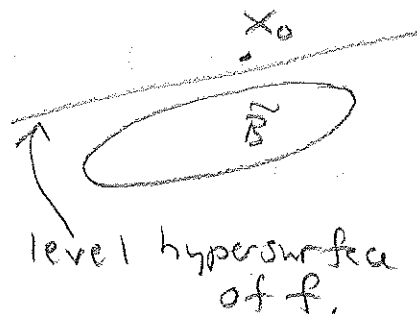 x₀
B̃
level hypersurface
of f.